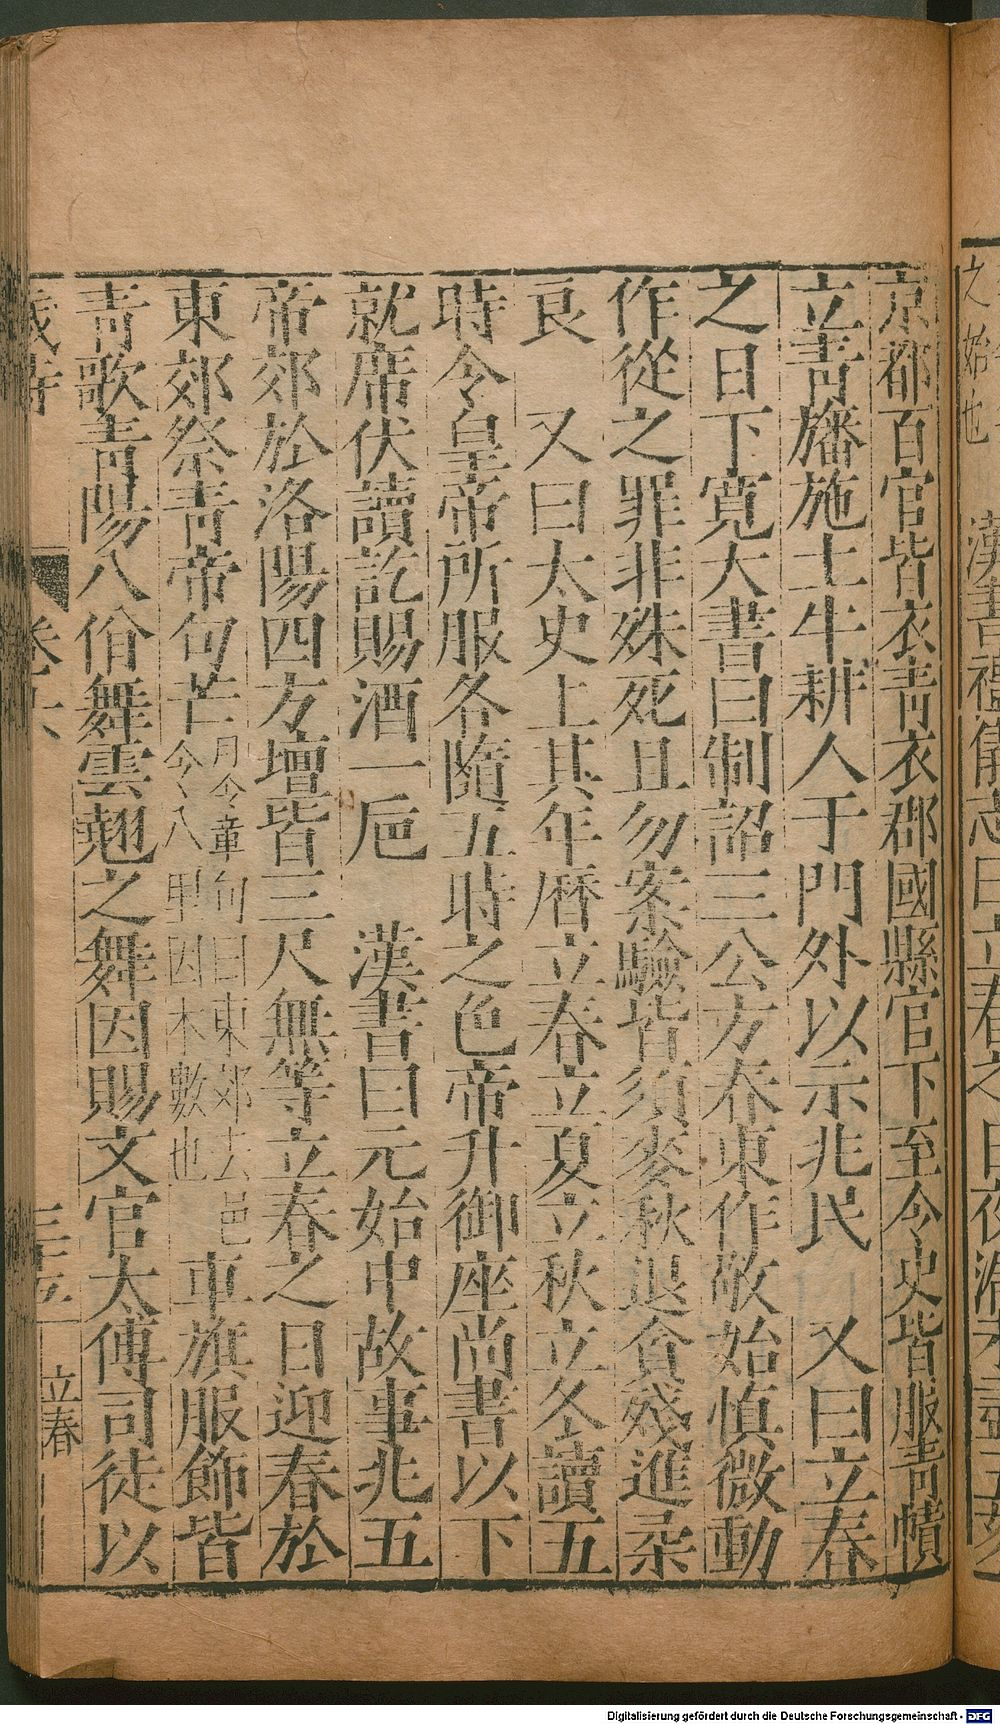 京都百官皆衣青衣郡國縣官下至令史皆服青幘
立青旛施土牛耕人于門外以示兆民 又曰立春
之日下寬大書曰制詔三公方春東作敬始慎微動
作從之罪非殊死且勿案驗皆須麥秋退貪殘進柔
良 又曰太史上其年曆立春立夏立秋立冬讀五
時令皇帝所服各隨五時之色帝升御座尚書以下
就席伏讀訖賜酒一巵 漢書曰元始中故事兆五
帝郊於洛陽四方壇皆三尺無等立春之日迎春於
東郊祭青帝句芒 月令章句曰東郊去邑
今八里因木數也 車旗服飾皆
青歌青陽八佾舞雲翹之舞因賜文官太傅司徒以
歲時 三五 立春
之始也 漢書禮儀志曰立春之日夜漏未盡五刻
Digitalisierung gefördert durch die Deutsche Forschungsgemeinschaft - DFG